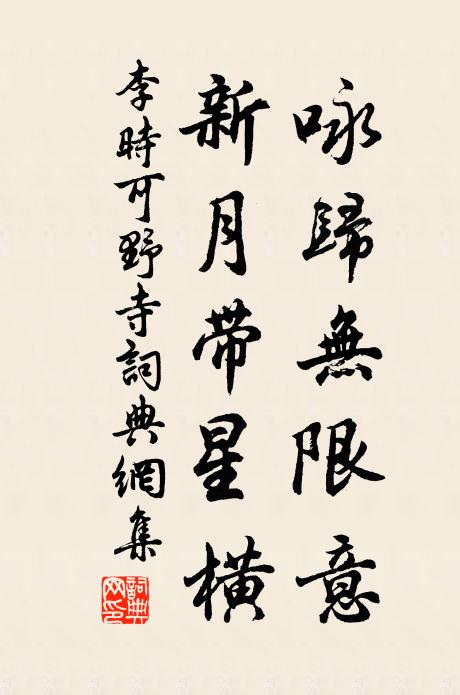 咏歸無限意
新月带星橫
李時可野寺詞典網集
詞典網印